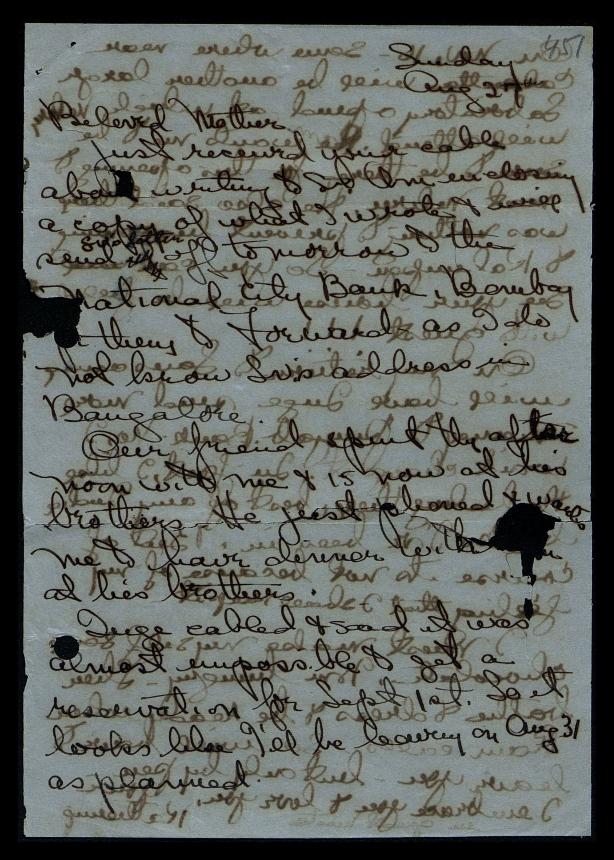 851
Sunday
Aug 27th
Beloved Mother
Just received your cable
about writing to enclosing
a copy of what I wrote & will
send off tomorrow to the
National City Bank, Bombay
them to forward as I do
not know address in
Bangalore.
Our friend spent the after
noon with me & is now at his
brothers. He just phoned & wants
me to have dinner with
at his brothers.
Inge cabled & said it was
almost impossible to get a
reservation for Sept 1st. So it
looks like I'll be leaving on Aug 31
as planned.